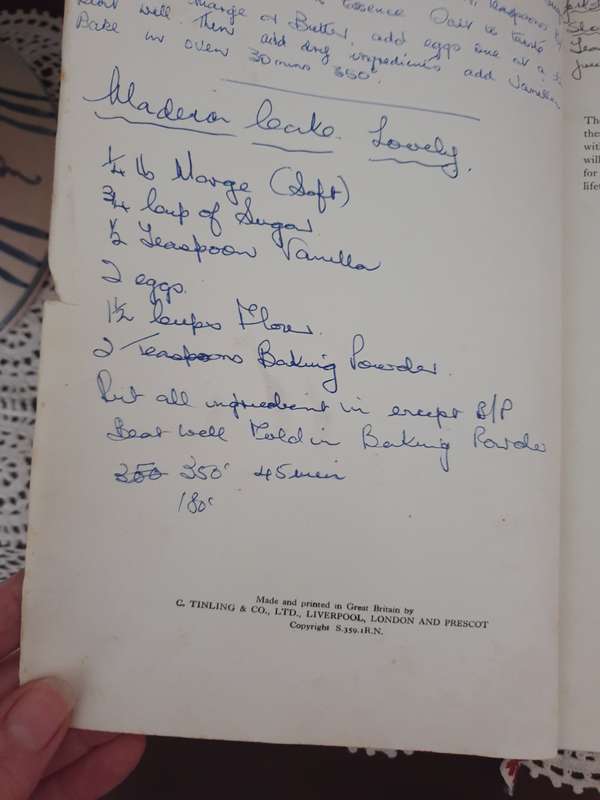 Teaspoons
Essence
well. Marge or Butter, add eggs one at a
well. Then add dry ingredients add Vanilla
Bake in oven 30 mins 350°
Madeira Cake. Lovely.
¼ lb Marge (Soft)
¾ Cup of Sugar
½ Teaspoon Vanilla
2 eggs.
1½ Cups Flour.
2 Teaspoons Baking Powder.
Put all ingredient in except B/P
Beat well Fold in Baking Powder
350° 45 min
180°
Made and printed in Great Britain by
C. TINLING & CO., LTD., LIVERPOOL, LONDON AND PRESCOT
Copyright S.359.1R.N.
The
thes
wit
will
for
lifet